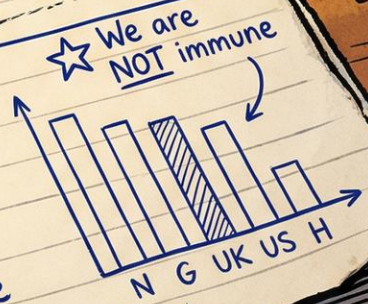 We are
NOT immune
N G UK US H